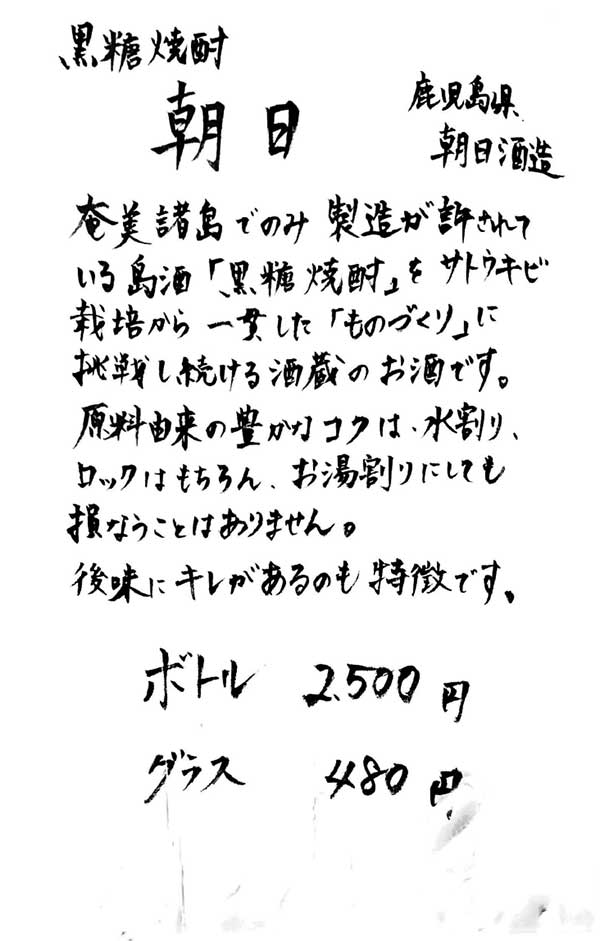 黒糖焼酎
朝日
鹿児島県
朝日酒造
奄美諸島でのみ 製造が許されて
いる島酒「黒糖焼酎」を サトウキビ
栽培から 一貫した「ものづくり」に
挑戦し続ける酒蔵のお酒です。
原料由来の豊かなコクは、水割り、
ロックはもちろん、お湯割りにしても
損なうことはありません。
後味にキレがあるのも 特徴です。
ボトル 2,500円
グラス 480円